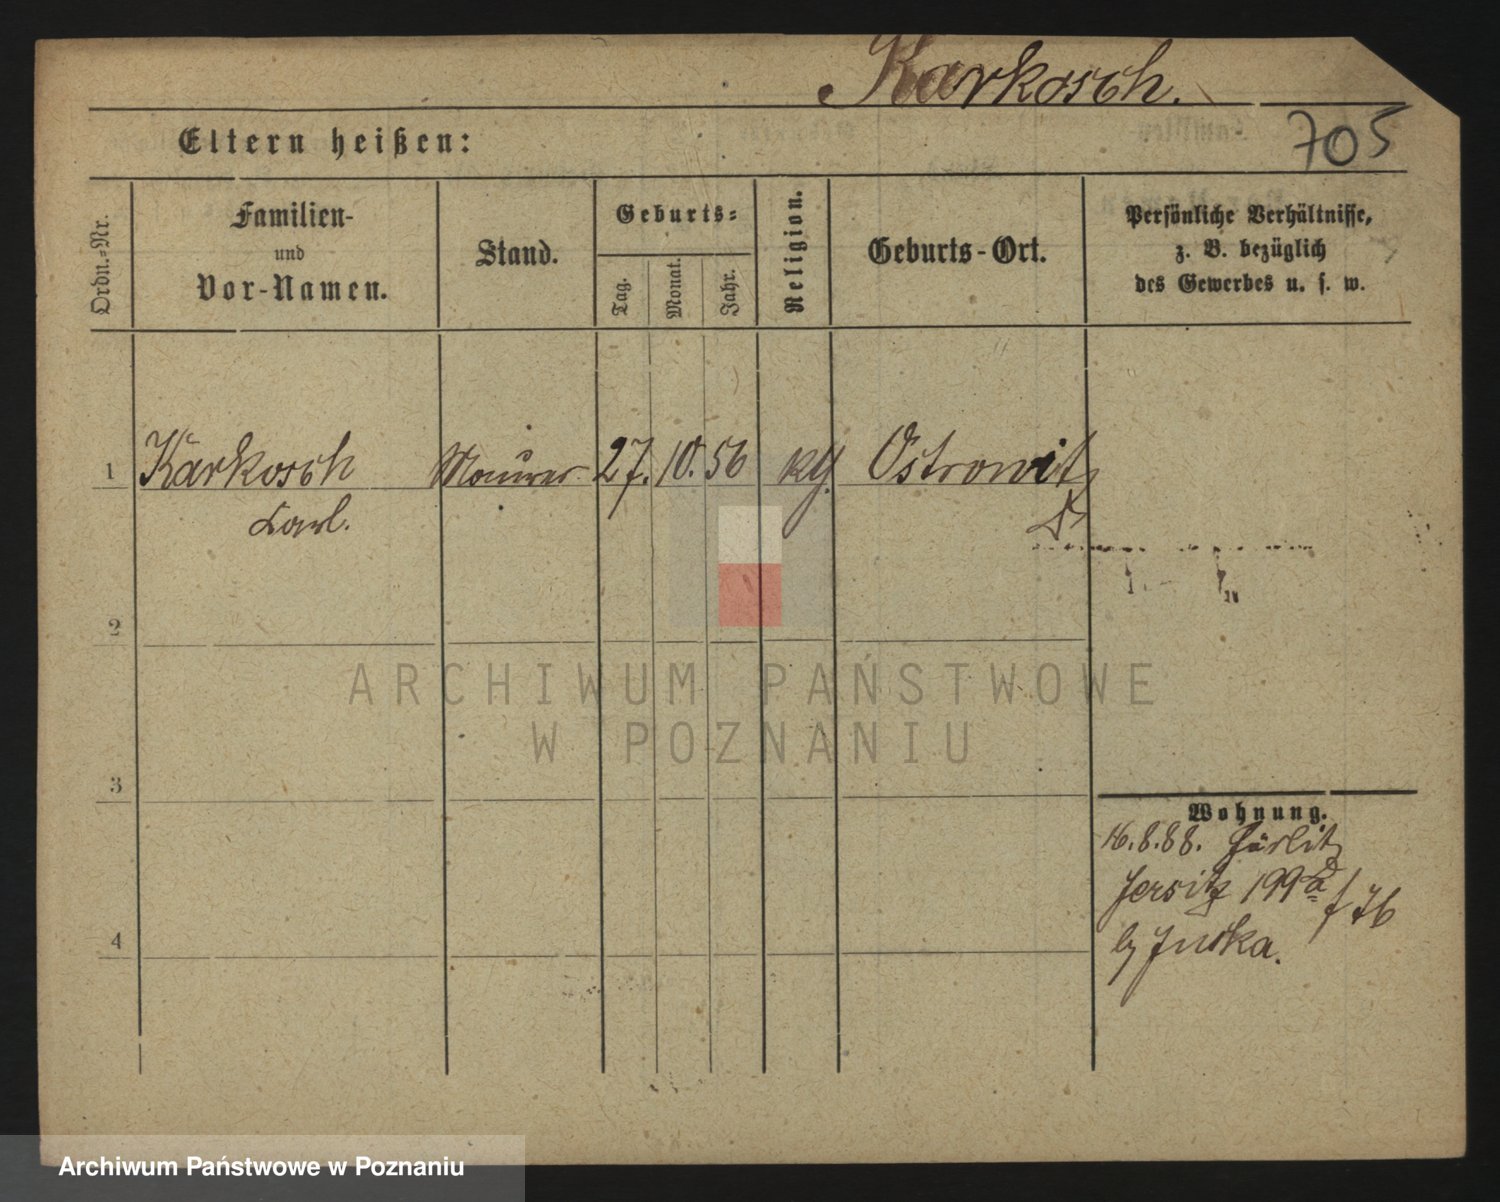 Karkosch.
705
Eltern heißen:
Ordn.-Nr.
Familien-
und
Vor-Namen.
Stand.
Geburts-
Tag.
Monat.
Jahr.
Religion.
Geburts-Ort.
Persönliche Verhältnisse,
z. B. bezüglich
des Gewerbes u. s. w.
1 Karkosch Maurer 27. 10. 56 Ostrowitz
Carl.
2
3
4
Wohnung.
16.8.88. Görlitz
Jersitz 199a f 76
ARCHIWUM PAŃSTWOWE
W POZNANIU
Archiwum Państwowe w Poznaniu